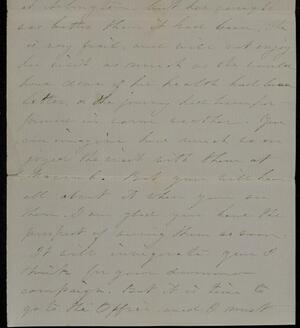 at Arlington. but her cough
was better than it had been, she
is very frail, and will not enjoy
her visit as much as she would
have done if her health had been
better, or the journey had been per-
formed in warm weather. You
can imagine how much we en-
joyed the visit with them at
But you will hear
all about it when you see
them. I am glad you have the
prospect of seeing them so soon.
It will invigorate you I
think for your summer
campaign, but it is time to
go to the Office and I must